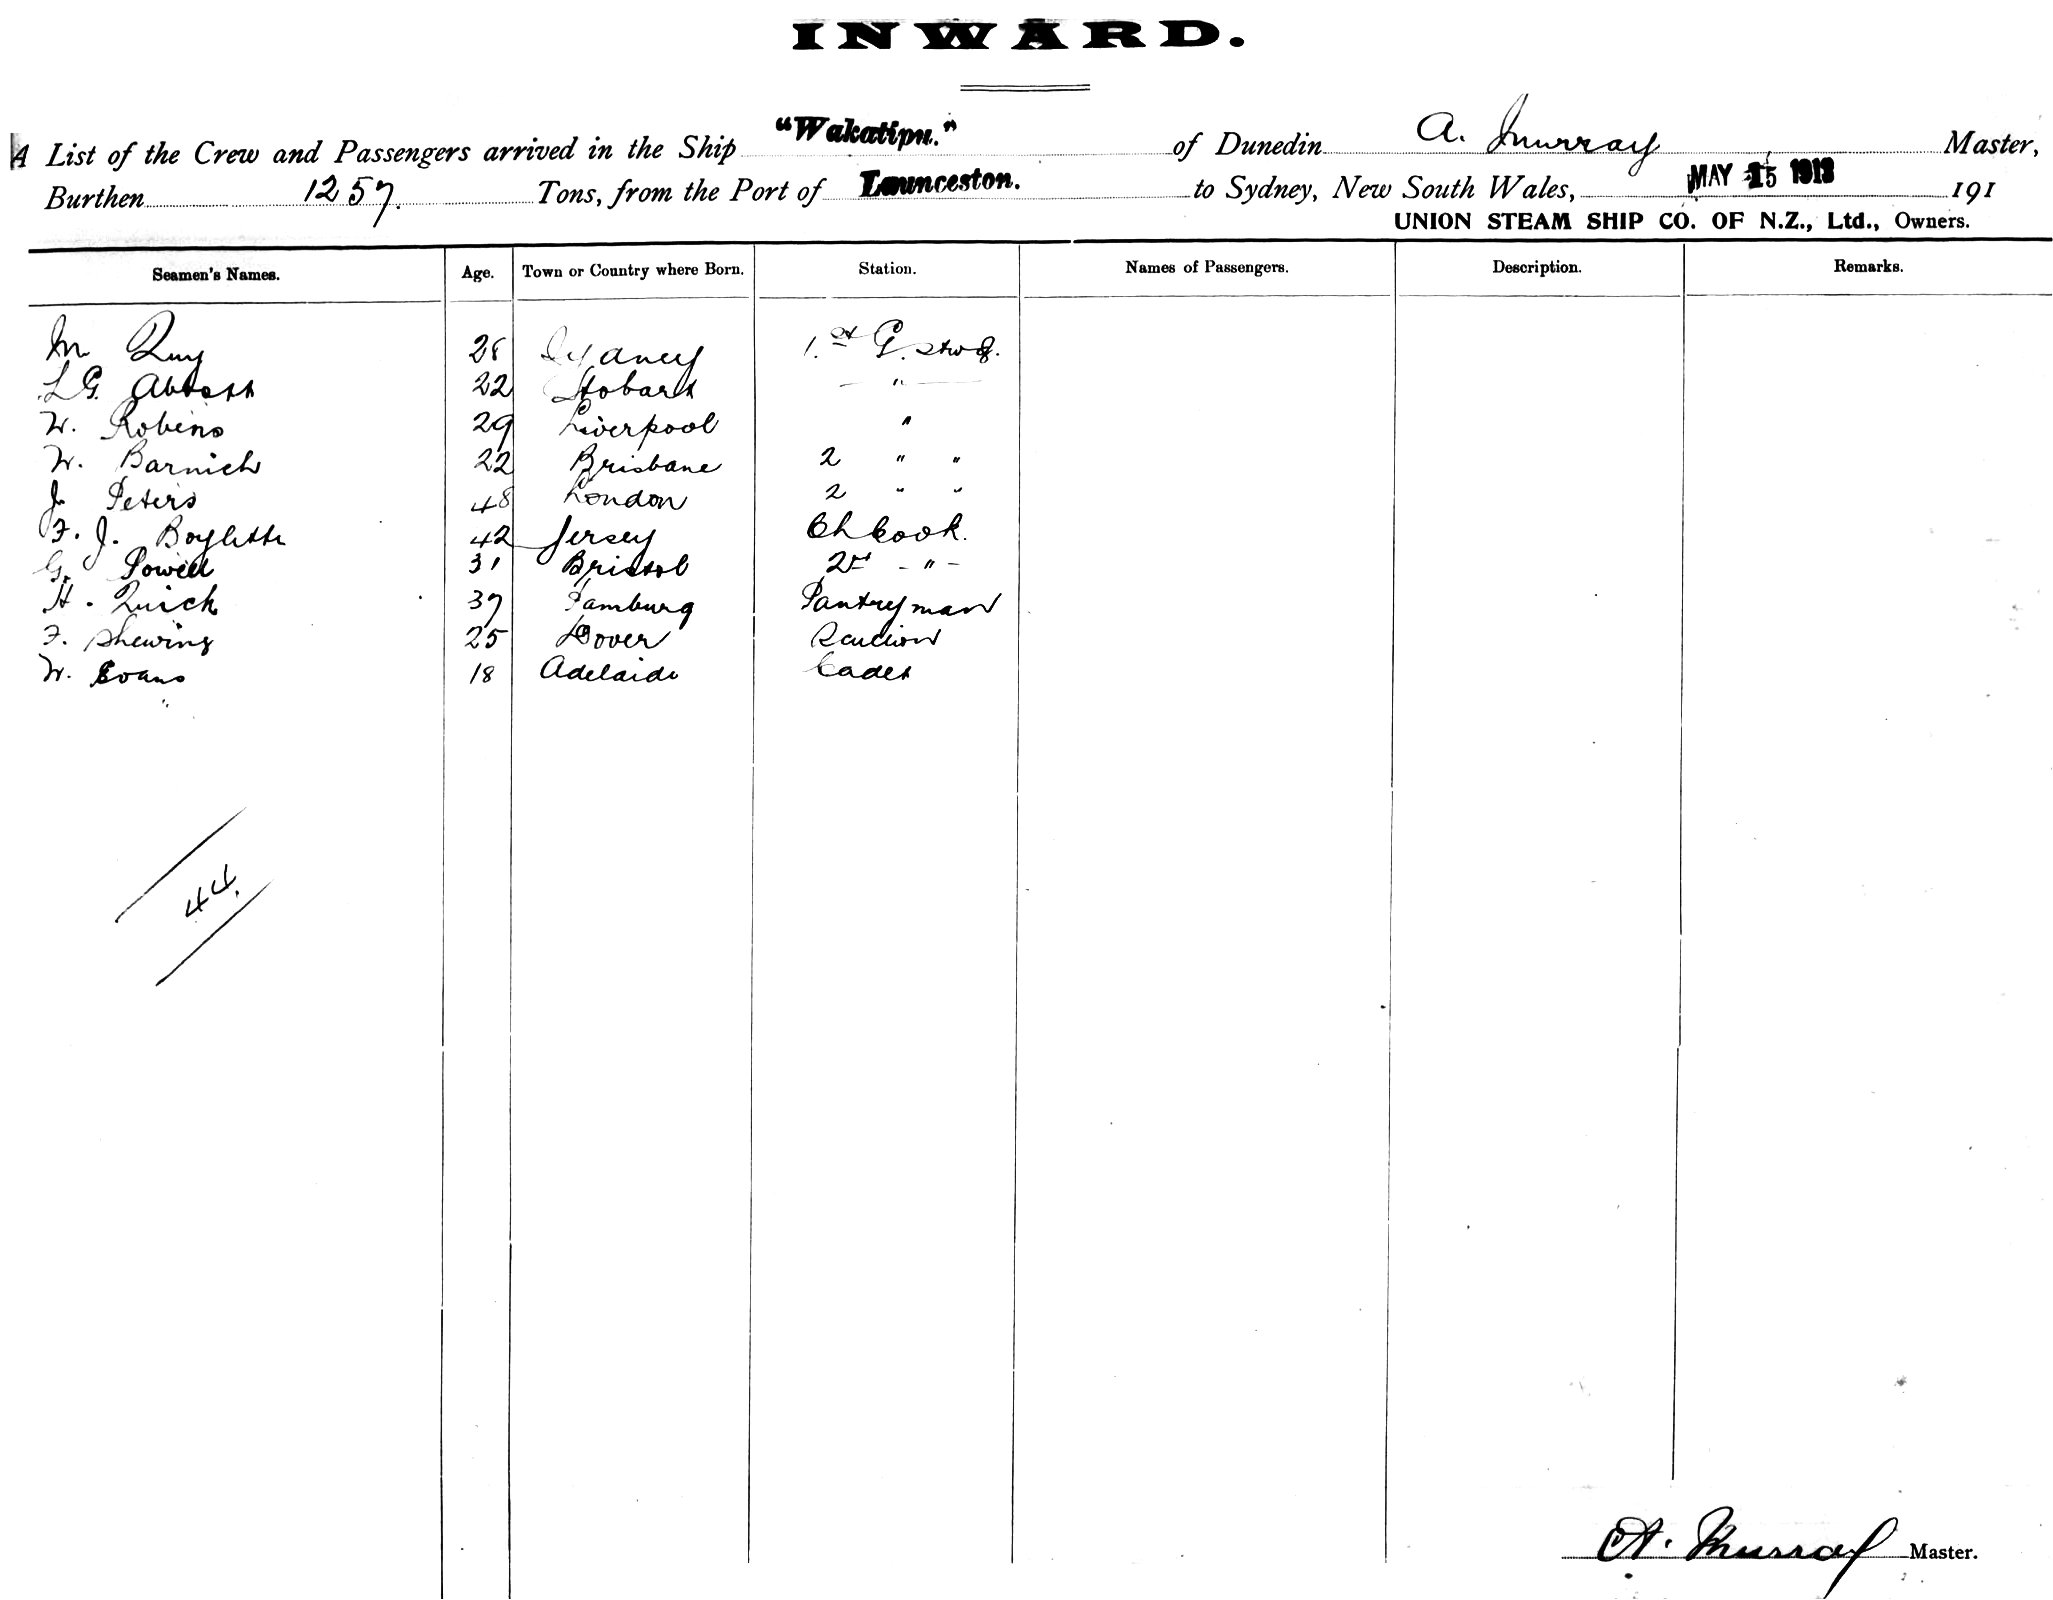 INWARD.
A List of the Crew and Passengers arrived in the Ship "Wakatipu." of Dunedin A. Murray Master,
Burthen 1257. Tons, from the Port of Launceston. to Sydney, New South Wales, MAY 15 1913 191
UNION STEAM SHIP CO. OF N.Z., Ltd., Owners.
Seamen's Names. Age. Town or Country where Born. Station. Names of Passengers. Description. Remarks.
M 28 Sydney 1.st G. stwd.
L G. Abbott 22 Hobart — " —
W. Robins 29 Liverpool "
W. Barnich 22 Brisbane 2 " "
J. Peters 48 London 2 " "
F. J. 42 Jersey Ch Cook.
G. Powell 31 Bristol 2 - " -
H. Quick 37 Hamburg Pantryman
F. Shewing 25 Dover Scullion
W. Evans 18 Adelaide Cadet
44.
A. Murray Master.